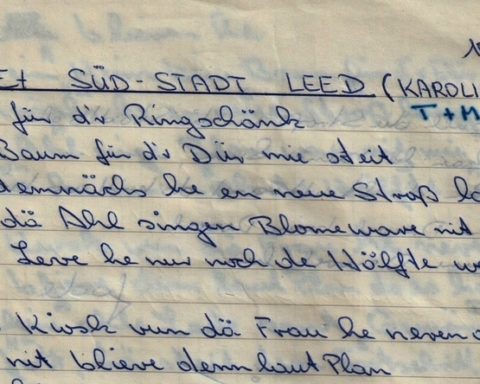 Et SÜD-STADT LEED (KAROLI
T + M
für d'r Ringschänk
Baum für d'r Dür mie steit
demnächs he en neue Stroß
dä Ahl singen Blomewave nit
Leve he nur noch de Hölfte
Kiosk vun dä Frau he neven
nit blieve denn laut Plan